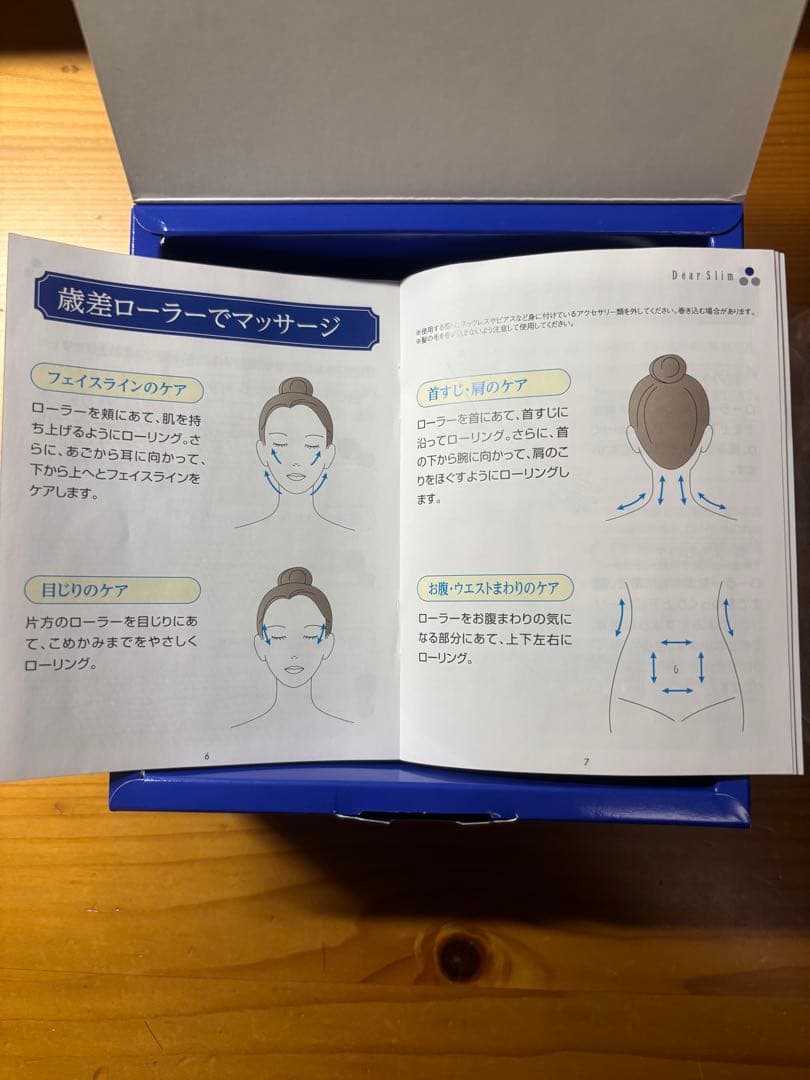 歳差ローラーでマッサージ
フェイスラインのケア
ローラーを頬にあて、肌を持
ち上げるようにローリング。さ
らに、あごから耳に向かって、
下から上へとフェイスラインを
ケアします。
目じりのケア
片方のローラーを目じりにあ
て、こめかみまでをやさしく
ローリング。
6
Dear Slim
※使用する際は、ネックレスやピアスなど身に付けているアクセサリー類を外してください。巻き込む場合があります。
※髪の毛を巻き込まないよう注意して使用してください。
首すじ・肩のケア
ローラーを首にあて、首すじに
沿ってローリング。さらに、首
の下から腕に向かって、肩のこ
りをほぐすようにローリングし
ます。
お腹・ウエストまわりのケア
ローラーをお腹まわりの気に
なる部分にあて、上下左右に
ローリング。
7